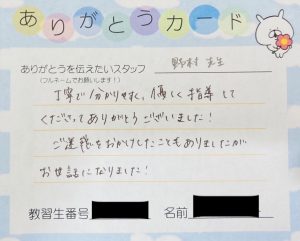 ありがとうカード
ありがとうを伝えたいスタッフ 野村 先生
(フルネームでお願いします!)
丁寧で分かりやすく、優しく指導して
くださってありがとうございました!
ご迷惑をおかけしたこともありましたが
お世話になりました!
教習生番号
名前